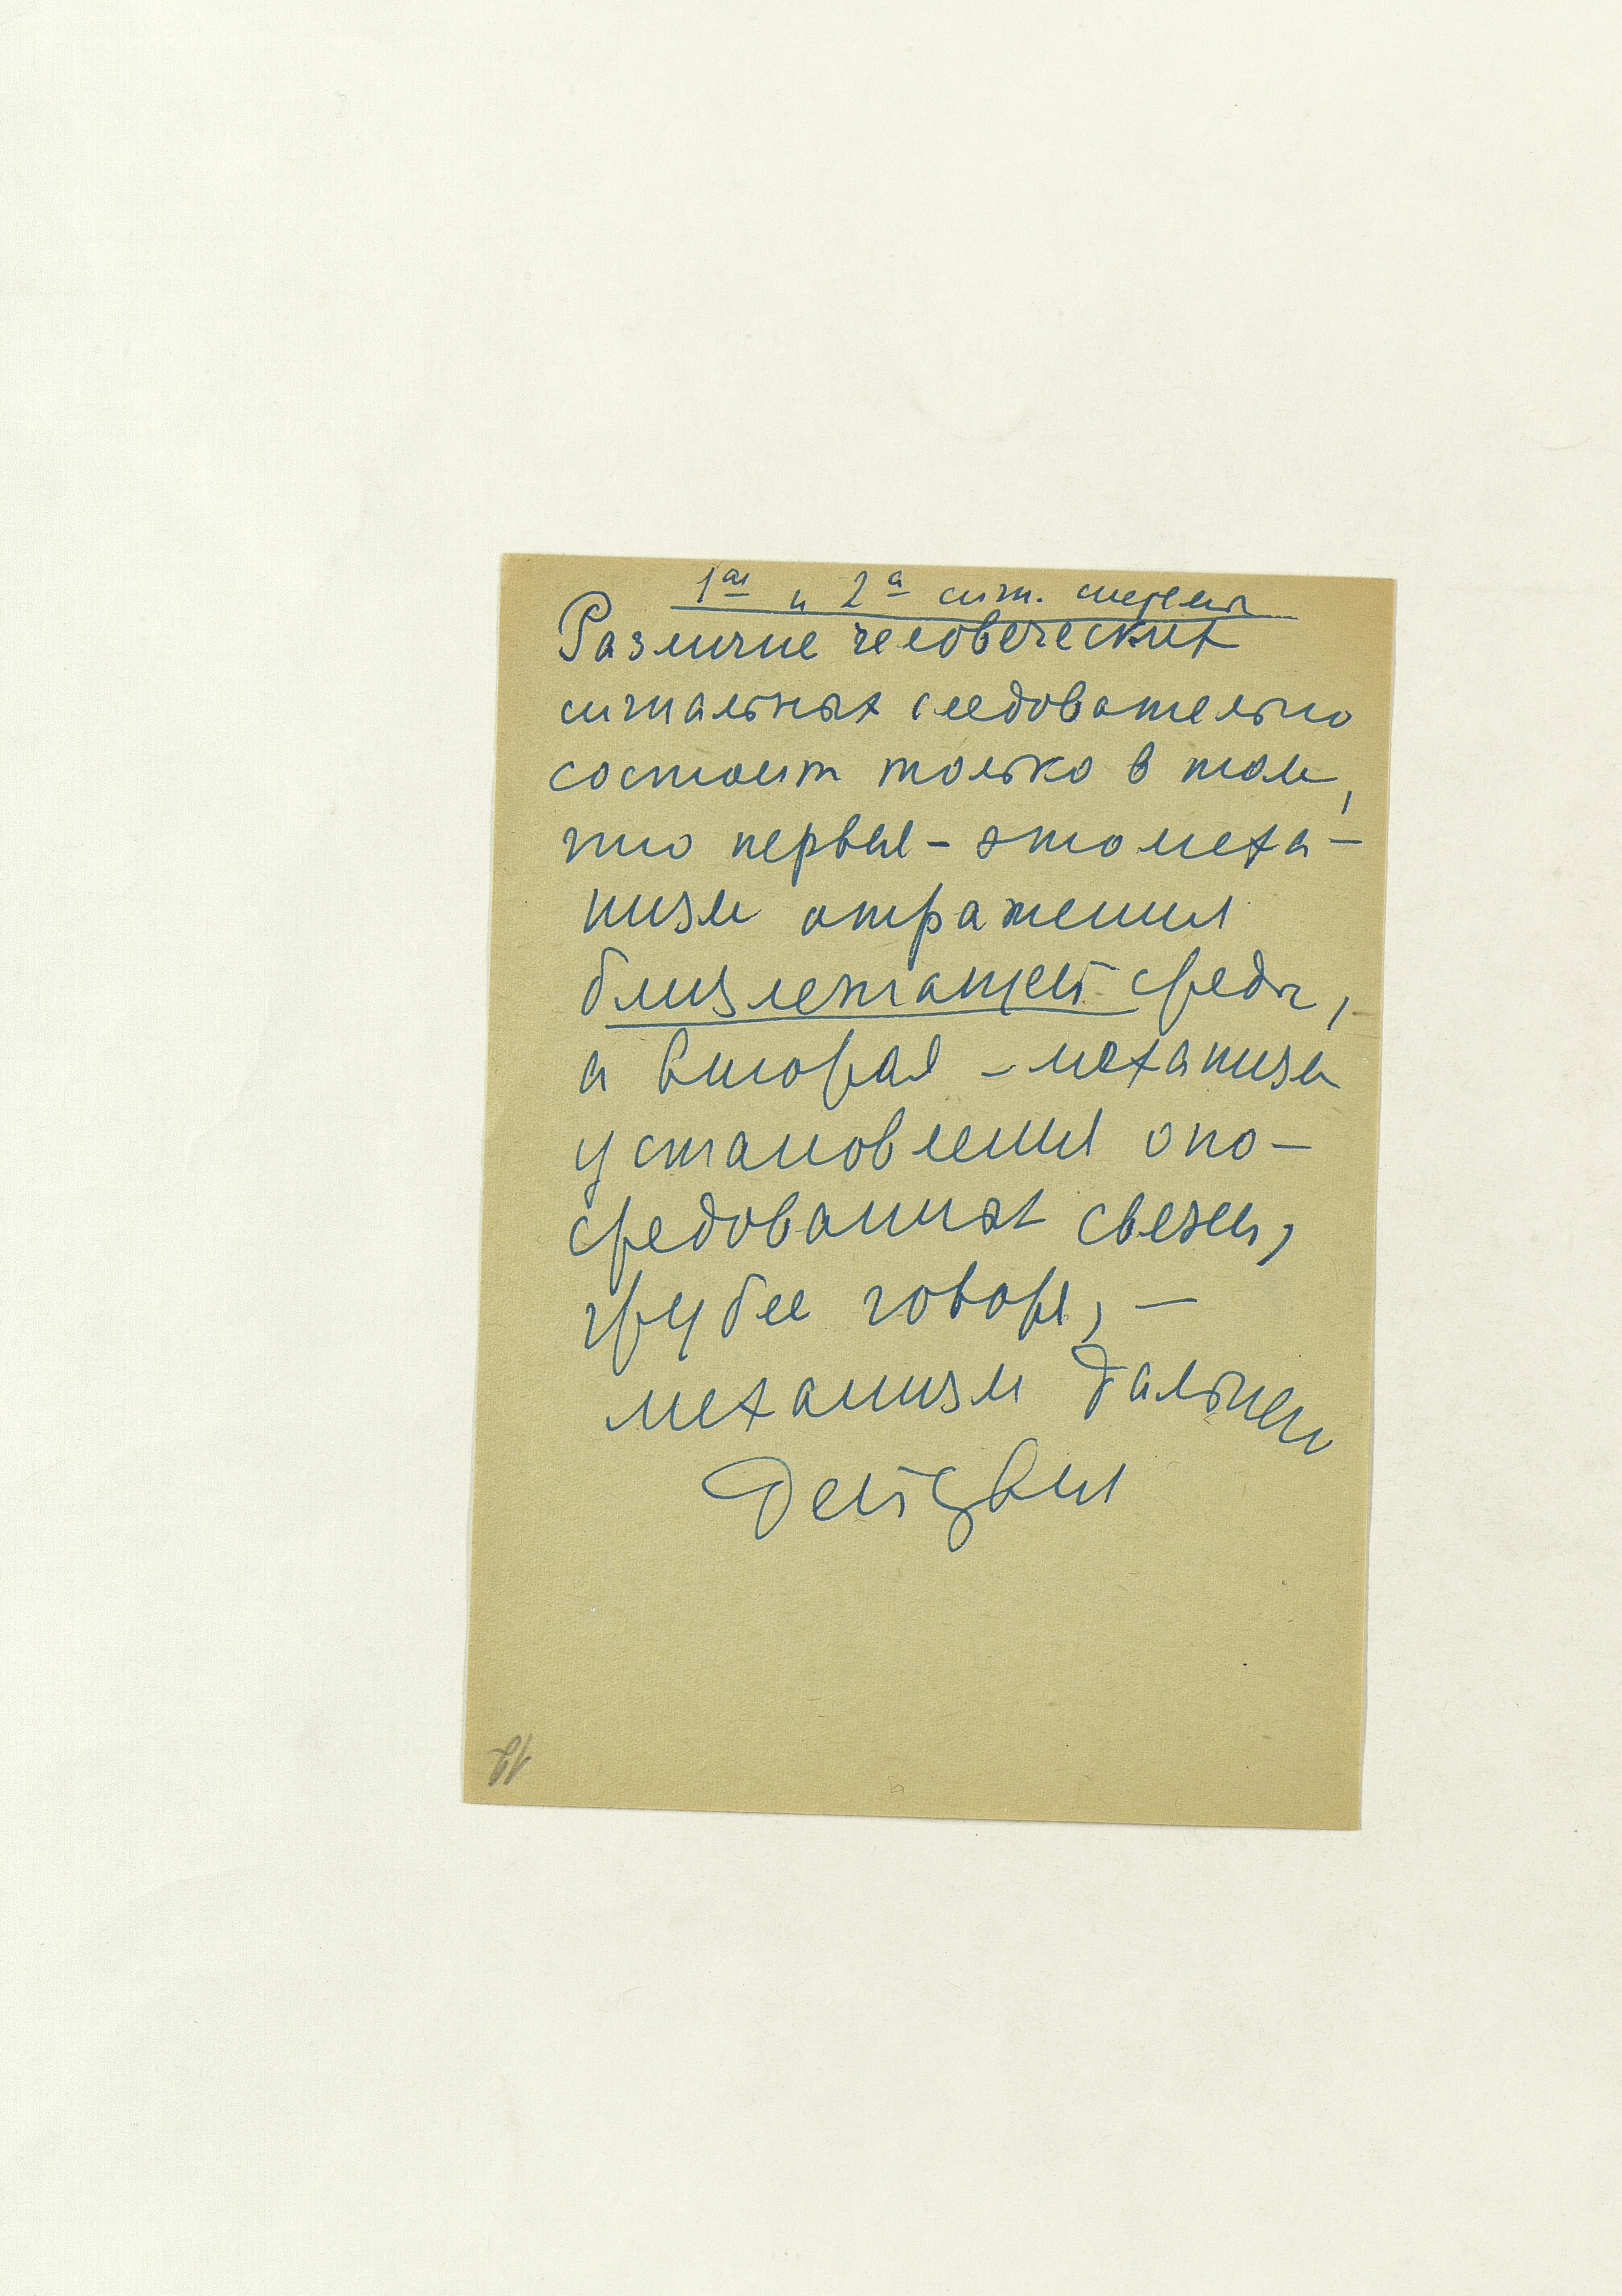 1ая и 2а сигн. системы
Различие человеческих
сигнальных следовательно
состоит только в том,
что первая – это меха-
низм отражения
близлежащей среды,
а вторая – механизм
установления опо-
средованных связей,
грубее говоря, –
механизм дальнего
действия